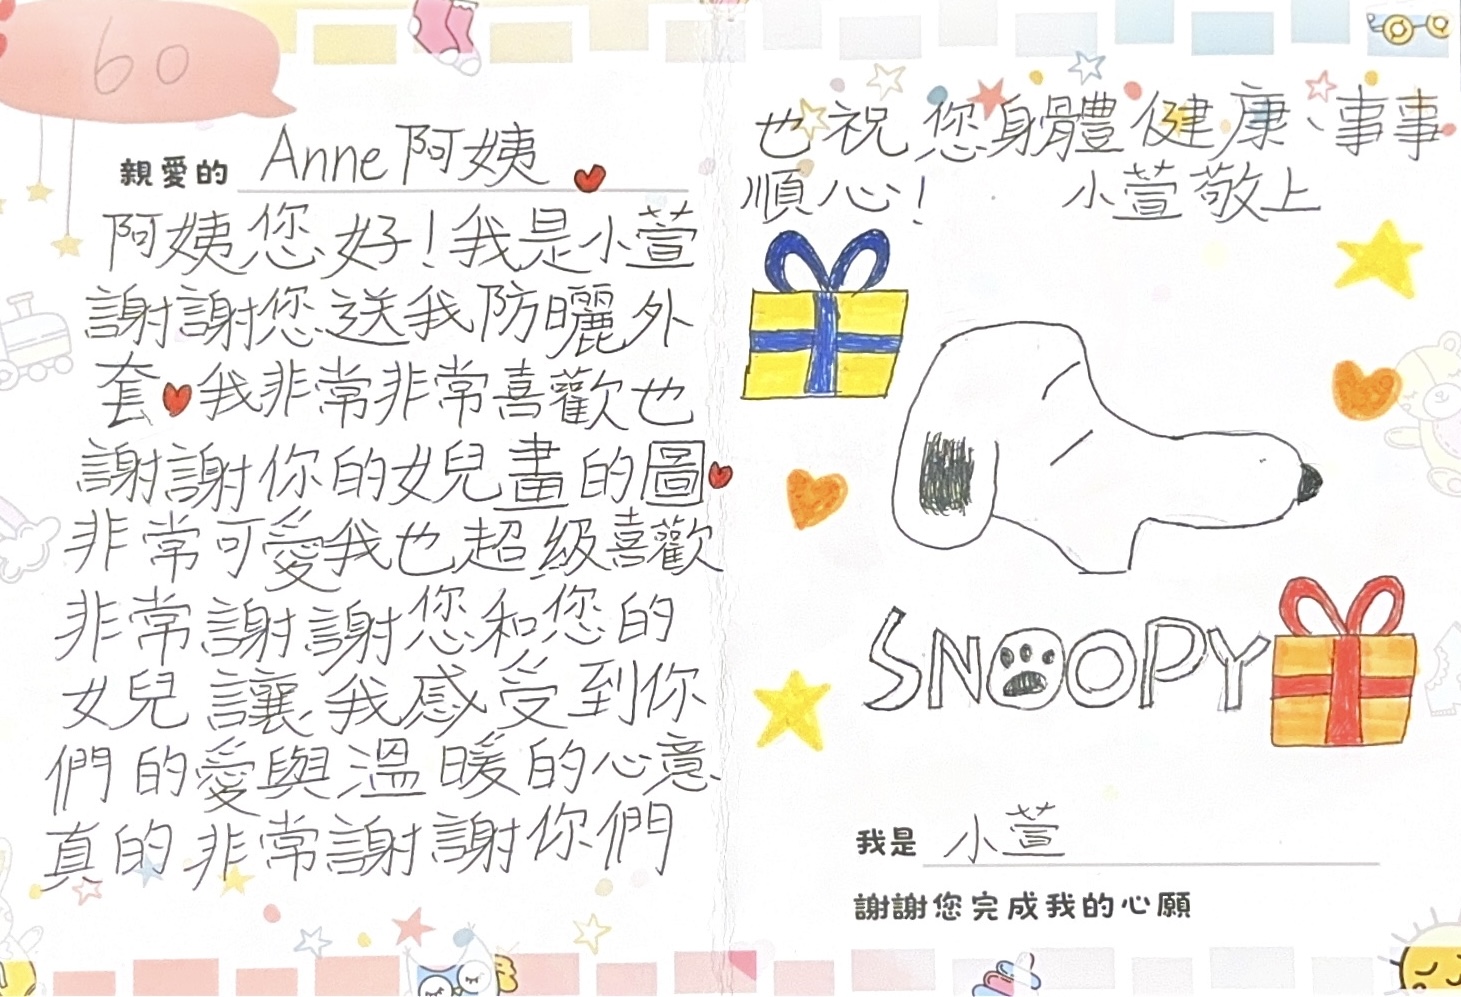 60
親愛的 Anne 阿姨
阿姨您好！我是小萱
謝謝您送我防曬外
套我非常非常喜歡也
謝謝你的女兒畫的圖
非常可愛我也超級喜歡
非常謝謝您和您的
女兒讓我感受到你
們的愛與溫暖的心意
真的非常謝謝你們
也祝您身體健康、事事
順心！
小萱敬上
SNOOPY
我是 小萱
謝謝您完成我的心願